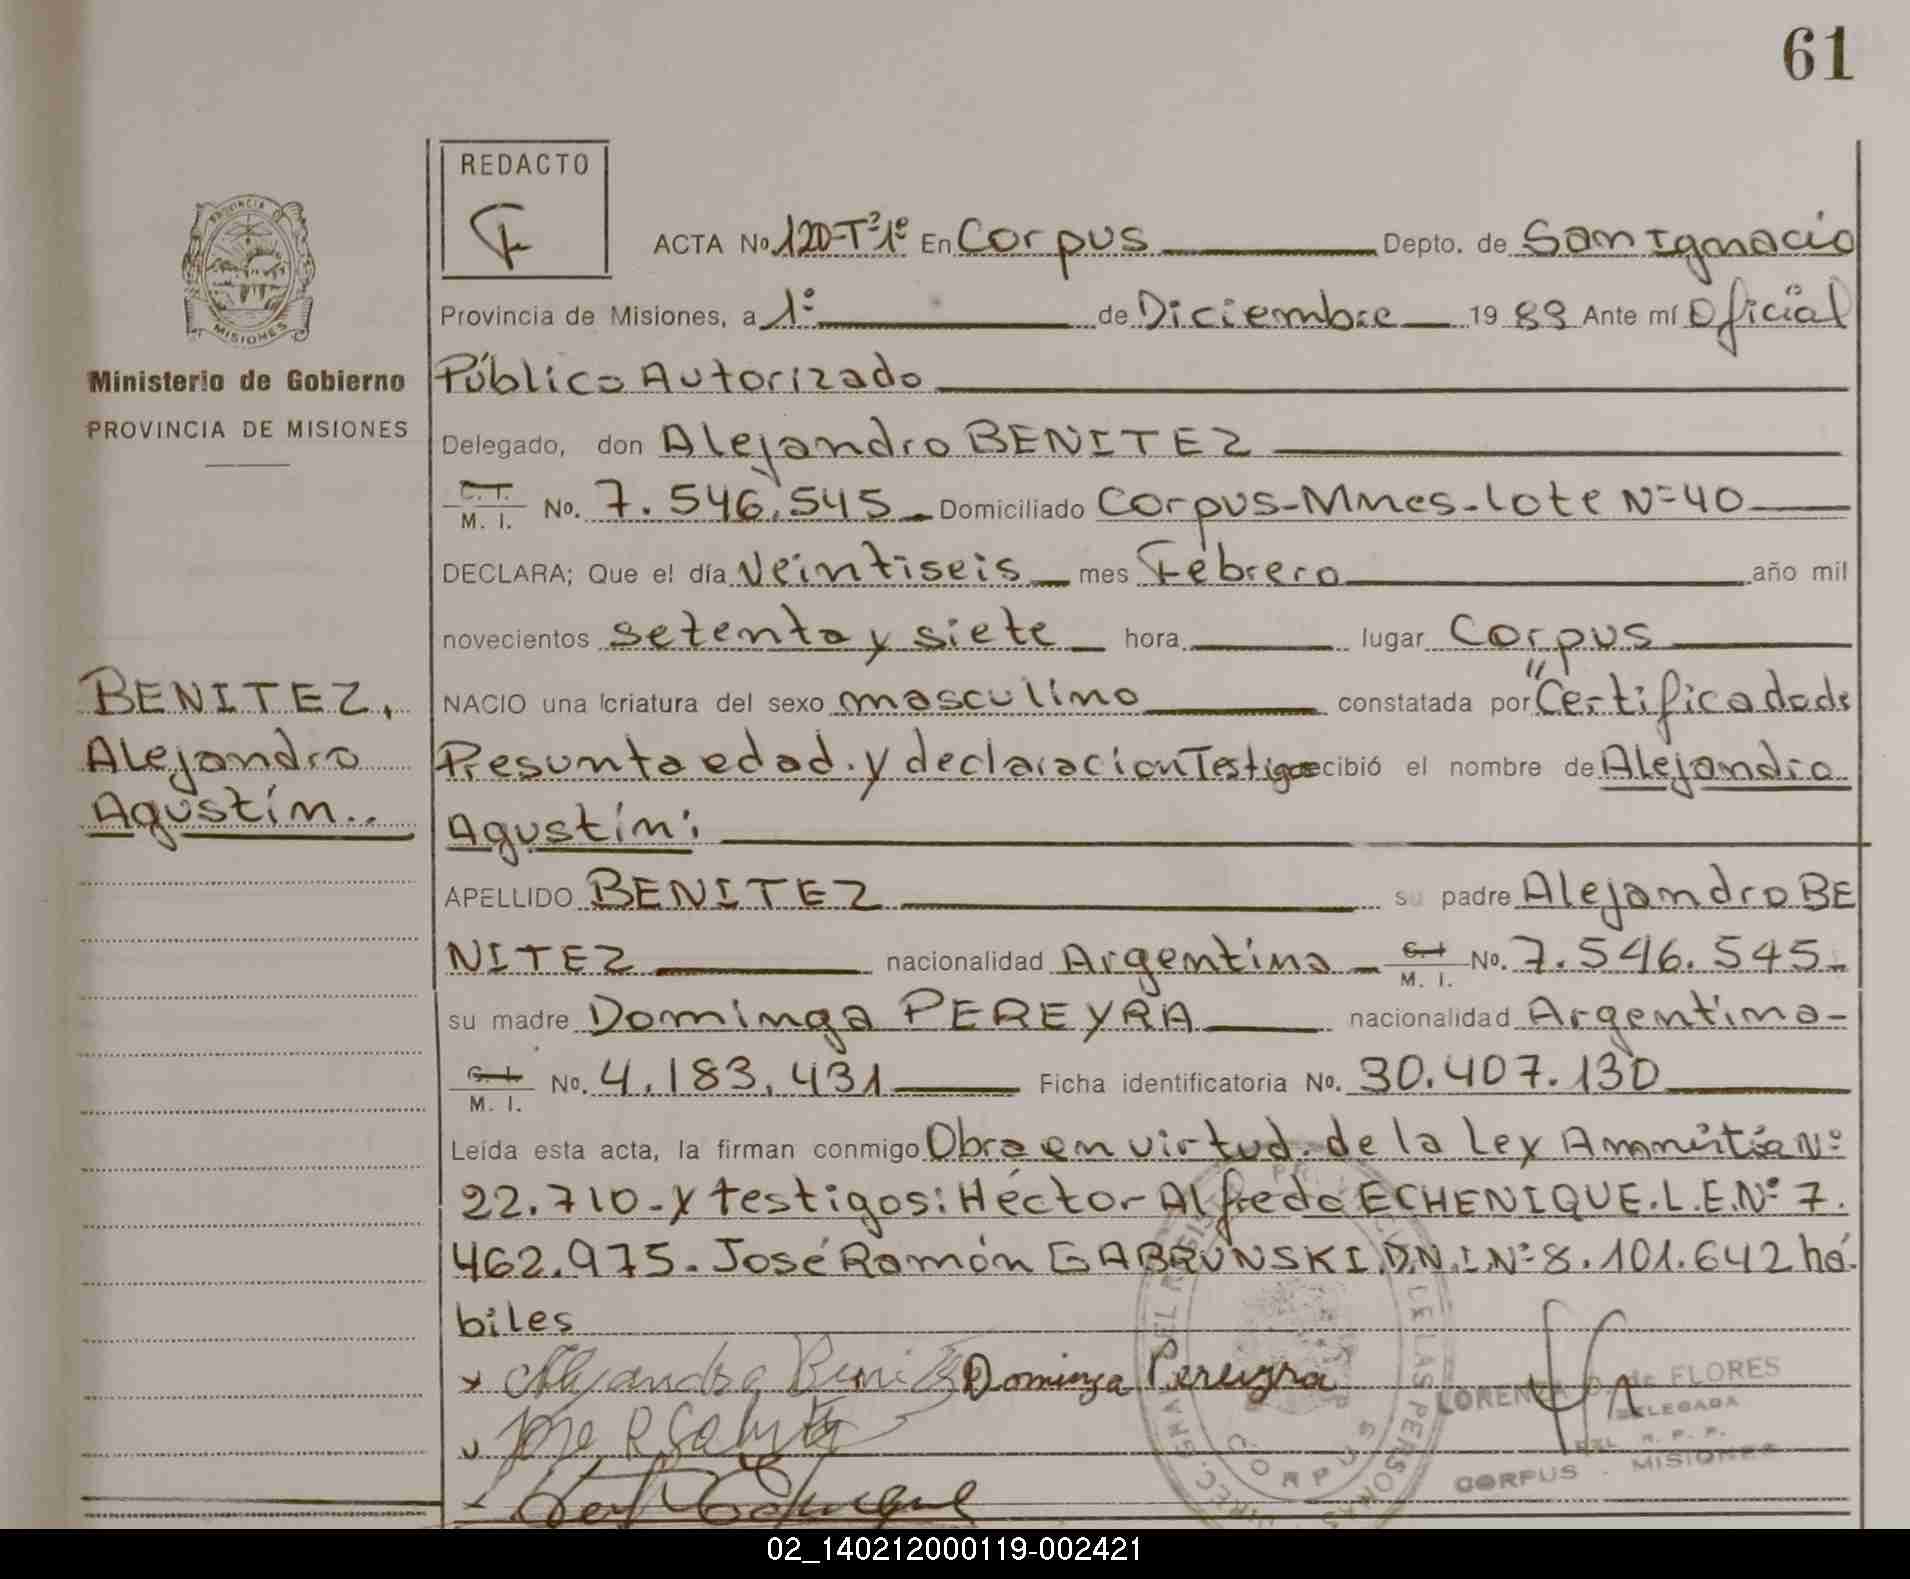 61
REDACTO
F
PROVINCIA DE
MISIONES
Ministerio de Gobierno
PROVINCIA DE MISIONES
BENITEZ,
Alejandro
Agustín..
ACTA No 120-Tº1º En Corpus Depto. de San Ignacio
Provincia de Misiones, a 1º de Diciembre 1989 Ante mí Oficial
Público Autorizado
Delegado, don Alejandro BENITEZ
C. I.
M. I. No. 7.546.545 Domiciliado Corpus-Mnes-lote Nº40
DECLARA; Que el día Veintiseis mes Febrero año mil
novecientos setenta y siete hora lugar Corpus
NACIO una criatura del sexo masculino constatada por "Certificado de
Presunta edad. y declaración Testigos recibió el nombre de Alejandro
Agustín.
APELLIDO BENITEZ su padre Alejandro BE
NITEZ nacionalidad Argentina C. I. M. I. No. 7.546.545
su madre Dominga PEREYRA nacionalidad Argentina-
C. I. M. I. No. 4.183.431 Ficha identificatoria No. 30.407.130
Leída esta acta, la firman conmigo Obra en virtud. de la Ley Amnistía Nº
22.710-y testigos: Héctor Alfredo ECHENIQUE.L.E.Nº 7.
462.975. José Ramón GABRUNSKI.D.N.I.Nº 8.101.642 há-
biles
Alejandro Benitez Dominga Pereyra
Jose R
DIREC. GRAL DEL REGISTRO PROVINCIAL DE LAS PERSONAS
CORPUS
de FLORES
DELEGADA
R. P. P.
CORPUS - MISIONES
02_140212000119-002421